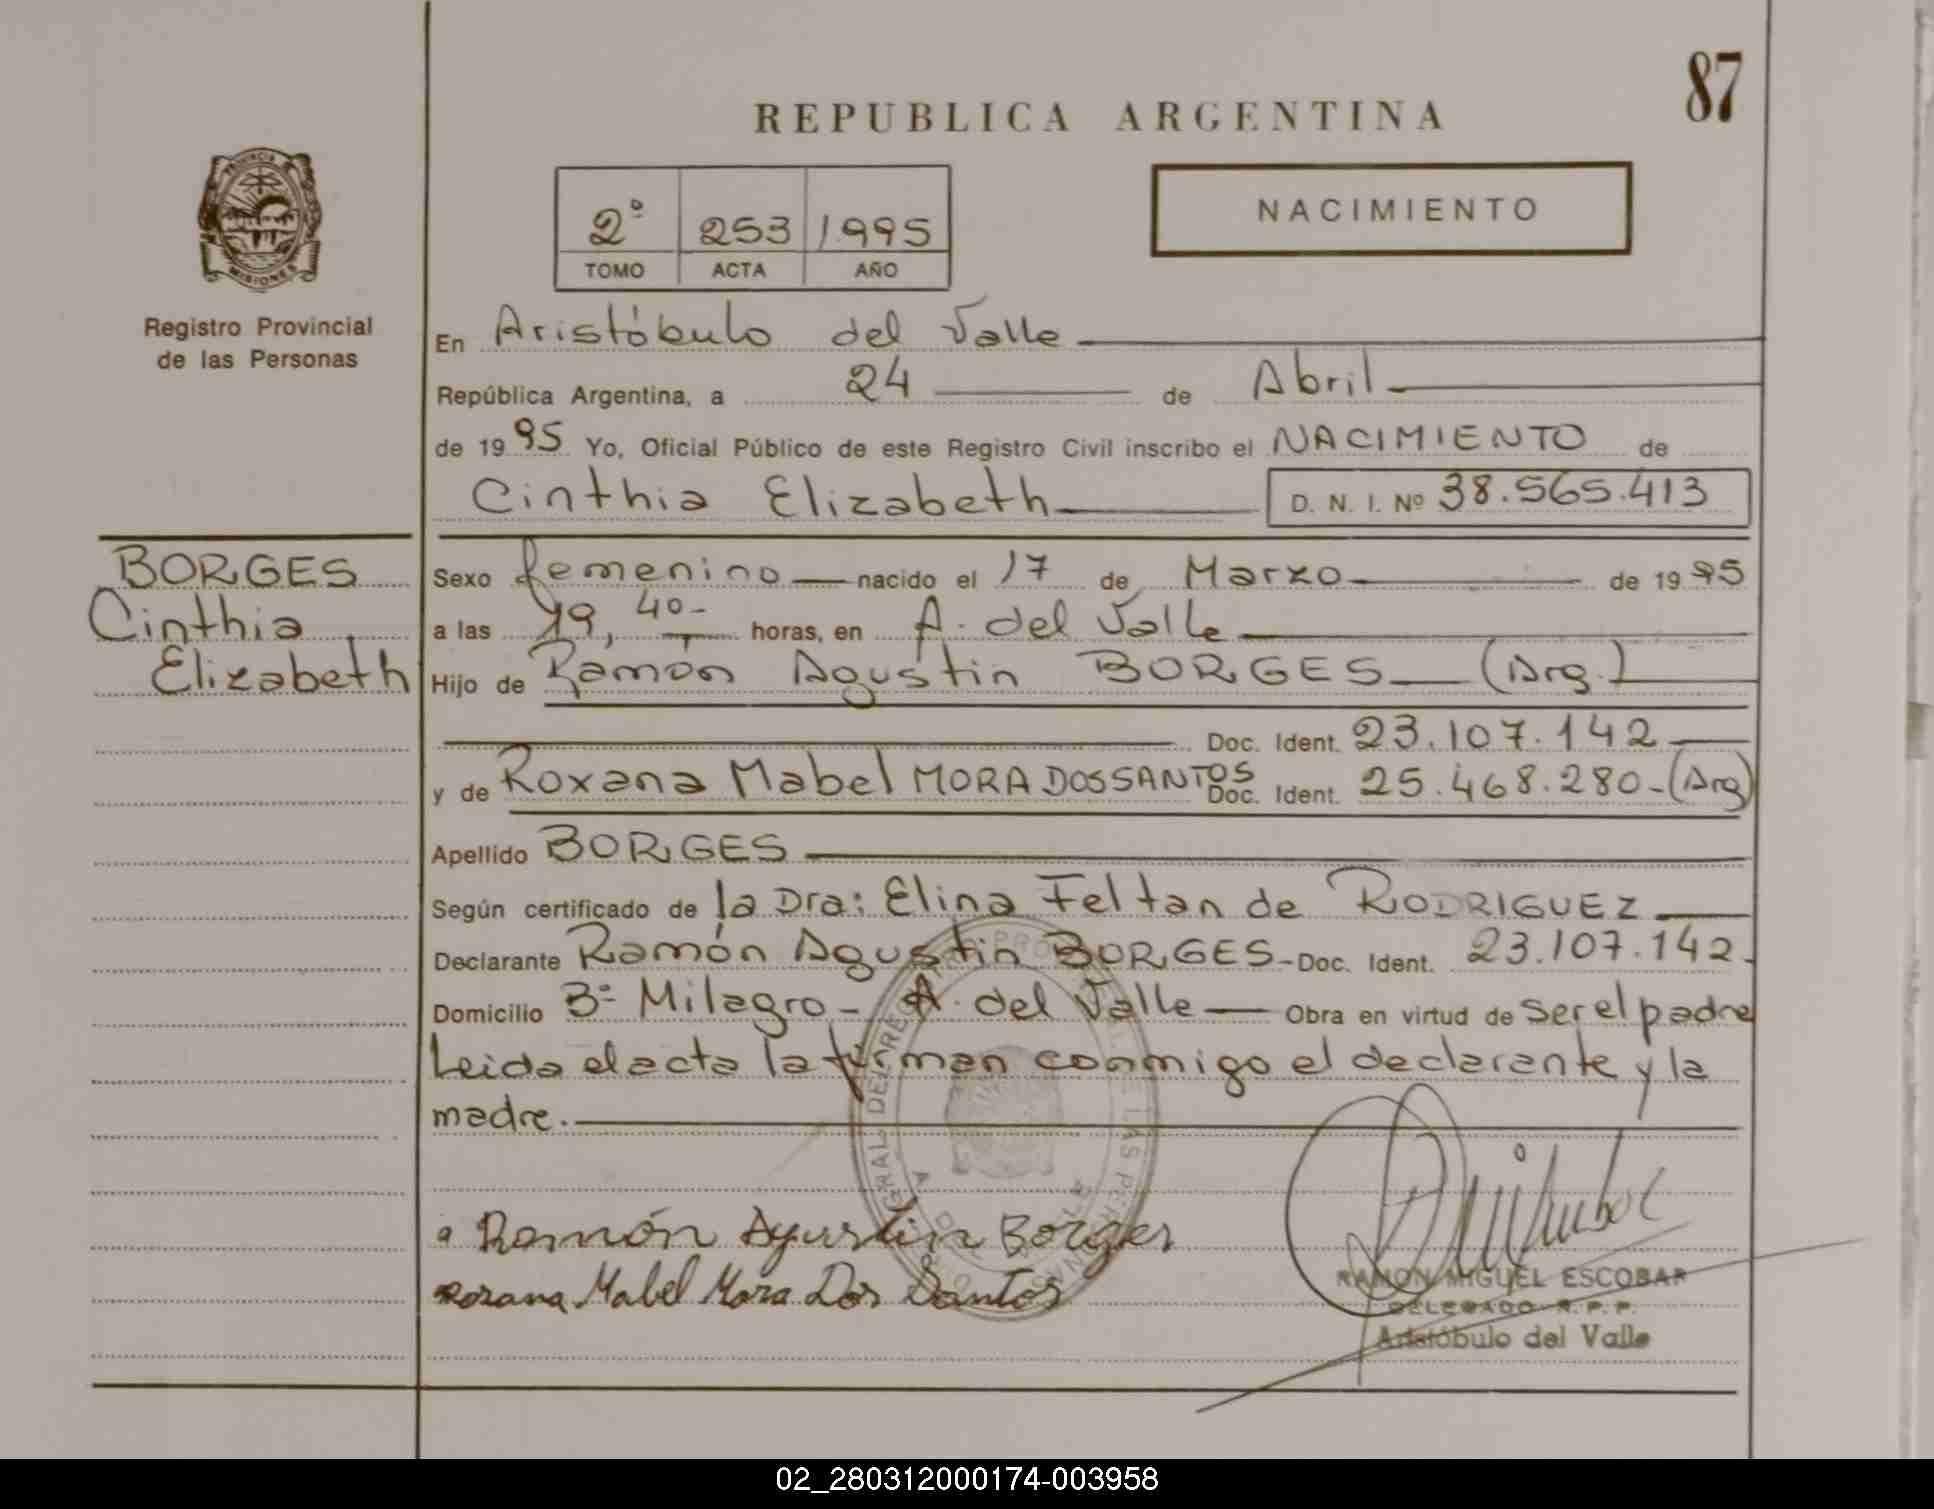 87
REPUBLICA ARGENTINA
PROVINCIA DE
MISIONES
Registro Provincial
de las Personas
2º 253 1995
TOMO ACTA AÑO
NACIMIENTO
En Aristóbulo del Valle
República Argentina, a 24 de Abril
de 1995 Yo, Oficial Público de este Registro Civil inscribo el NACIMIENTO de
Cinthia Elizabeth D. N. I. Nº 38.565.413
BORGES
Cinthia
Elizabeth
Sexo femenino nacido el 17 de Marzo de 1995
a las 19,40- horas, en A. del Valle
Hijo de Ramón Agustin BORGES (Arg.)
Doc. Ident. 23.107.142
y de Roxana Mabel MORA DOSSANTOS Doc. Ident. 25.468.280-(Arg)
Apellido BORGES
Según certificado de la Dra: Elina Feltan de RODRIGUEZ
Declarante Ramón Agustin BORGES- Doc. Ident. 23.107.142.
Domicilio Bº Milagro- A. del Valle Obra en virtud de ser el padre
Leida el acta la firman conmigo el declarante y la
madre.
Ramón Agustin Borges
Roxana Mabel Mora Dos Santos
RAMON MIGUEL ESCOBAR
DELEGADO R.P.P.
Aristóbulo del Valle
02_280312000174-003958